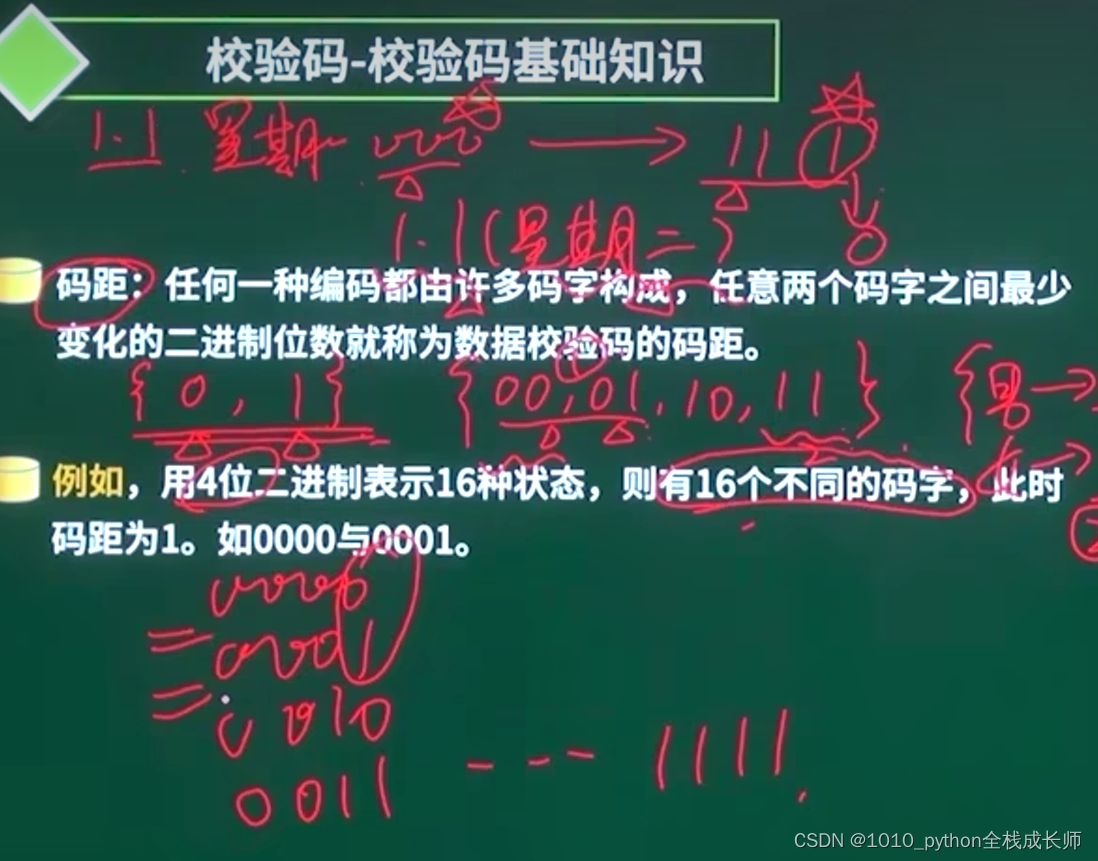 校验码-校验码基础知识
1.1 星期 000 → 11 1
1.1(星期二) 0
码距：任何一种编码都由许多码字构成，任意两个码字之间最少
变化的二进制位数就称为数据校验码的码距。
1
{0,1} {00,01,10,11} {男→
例如，用4位二进制表示16种状态，则有16个不同的码字，此时
码距为1。如0000与0001。
0000
=0001
=0010
0011 --- 1111
CSDN @1010_python全栈成长师